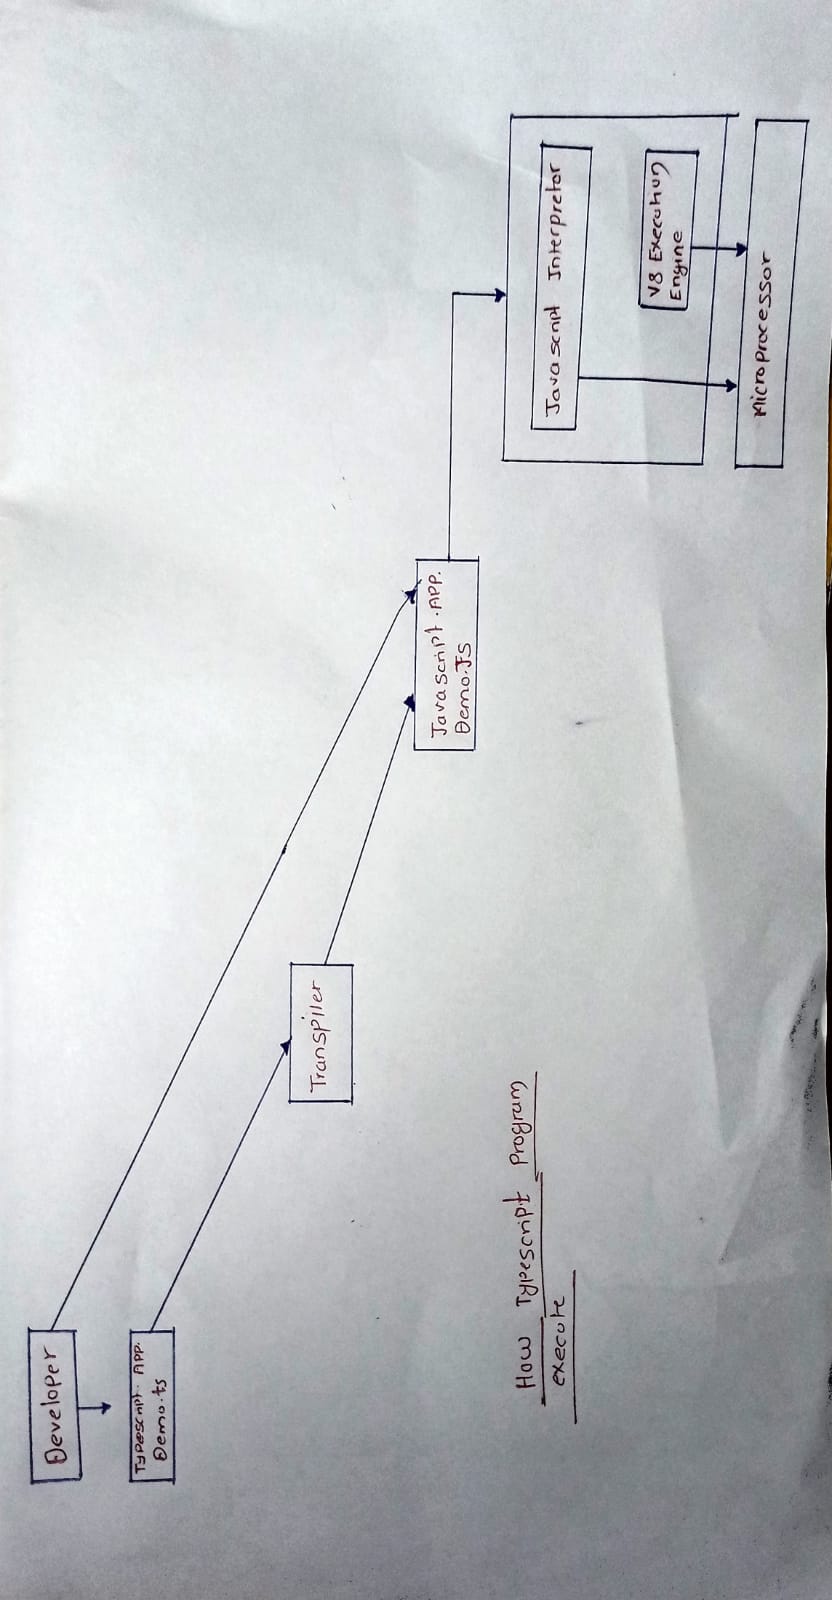 Developer
Typescript. APP.
Demo.ts
Transpiler
Javascript.APP.
Demo.JS
Javascript Interpretor
V8 Execution
Engine
Microprocessor
How Typescript program
execute